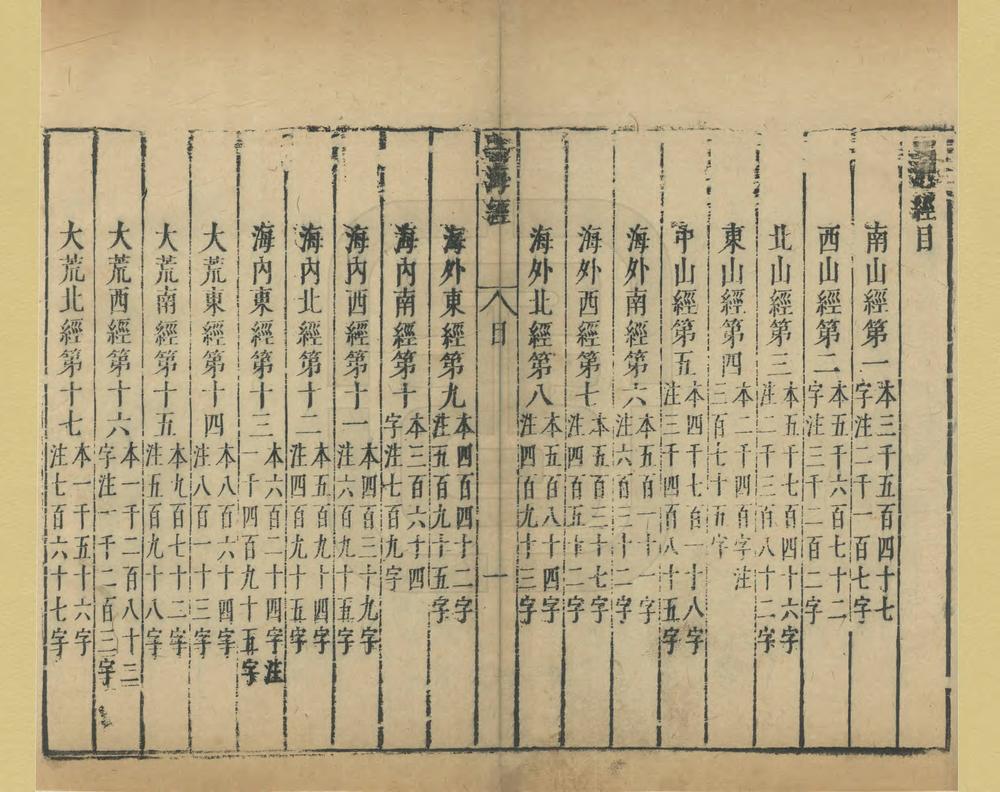 山海經目
南山經第一 本三千五百四十七
字注二千一百七字
西山經第二 本五千六百七十二
字注三千二百二字
北山經第三 本五千七百四十六字
注二千三百八十二字
東山經第四 本二千四百字注
三百七十五字
中山經第五 本四千七百一十八字
注三千四百八十五字
海外南經第六 本五百一十一字
注六百三十二字
海外西經第七 本五百三十七字
注四百五十二字
海外北經第八 本五百八十四字
注四百九十三字
山海經 目 一
海外東經第九 本四百四十二字
注五百九十五字
海內南經第十 本三百六十四
字注七百九字
海內西經第十一 本四百三十九字
注六百九十五字
海內北經第十二 本五百九十四字
注四百九十五字
海內東經第十三 本六百二十四字注
一千四百九十五字
大荒東經第十四 本八百六十四字
注八百一十三字
大荒南經第十五 本九百七十二字
注五百九十八字
大荒西經第十六 本一千二百八十三
字注一千二百三字
大荒北經第十七 本一千五十六字
注七百六十七字